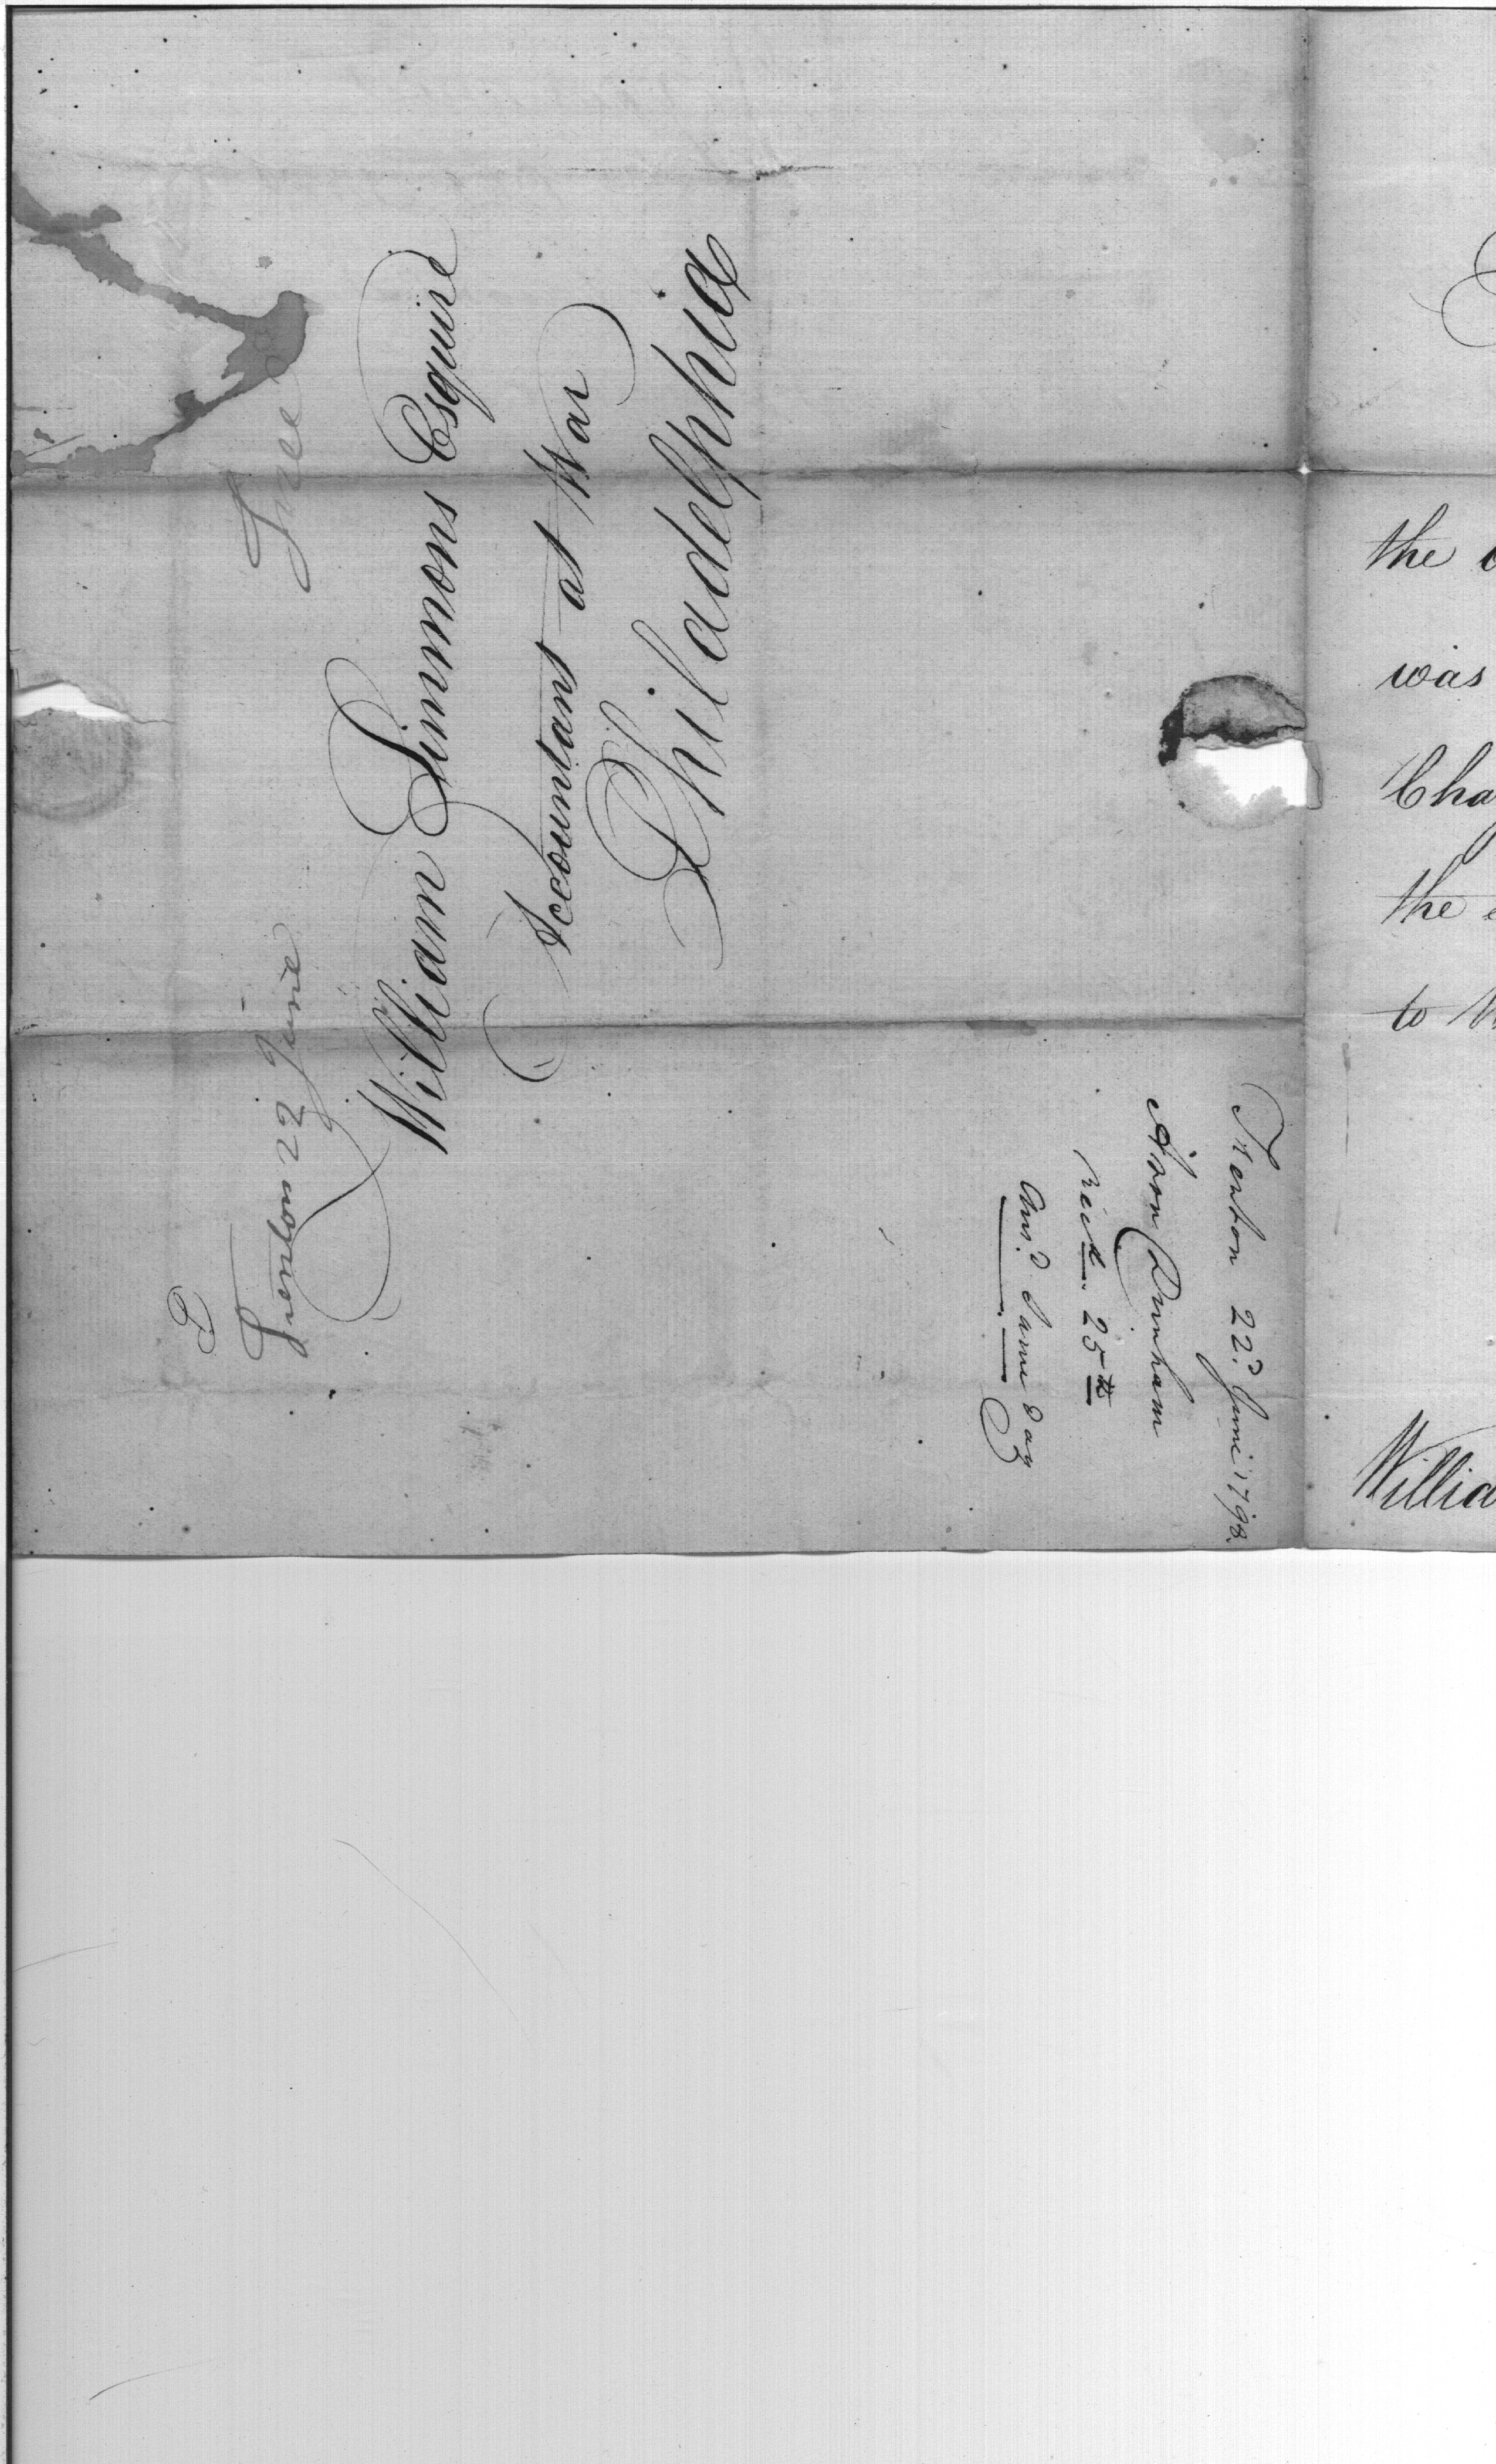 Trenton 22 June
Free
William Simmons Esquire
Accountant at War
Philadelphia
Trenton 22d. June 1798.
Aaron Dunham
Recd. 25th
Ansd. Same day
the
was
Cha
the
to
Willia